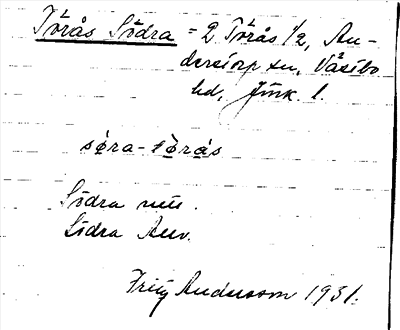 Törås Södra = 2 Törås 1/2, An-
derstorp sn, Våsbo
hd, Jönk. l.
söra-törås
Södra
Södra Anv.
Andersson 1931.